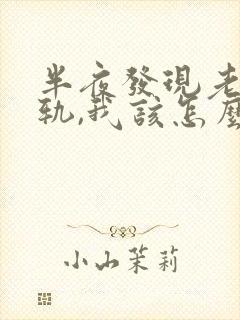 半夜發現老
軌,我該怎麼
小山茉莉